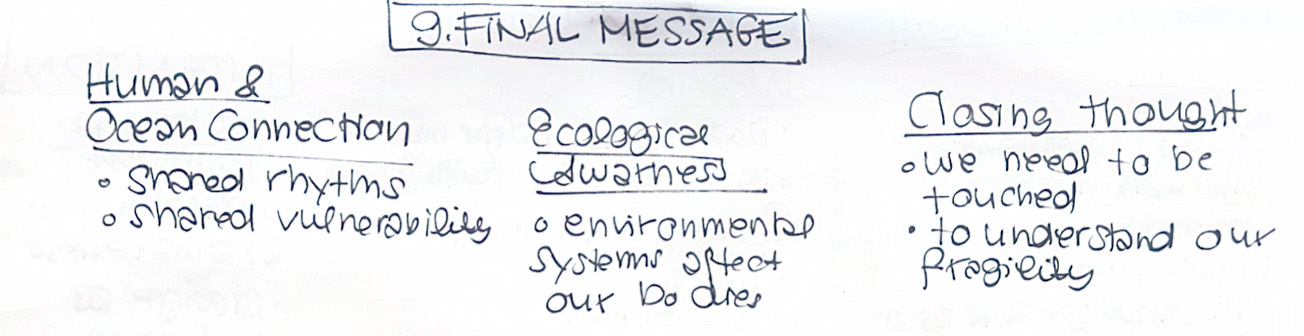 9. FINAL MESSAGE
Human &
Ocean Connection
• Shared rhythms
• shared vulnerability
Ecological
awarness
• environmental
systems affect
our bodies
Closing thought
• we need to be
touched
• to understand our
fragility